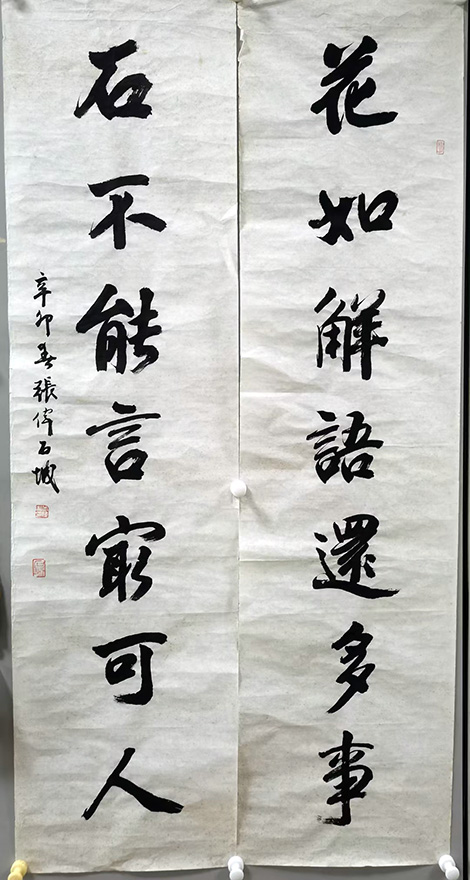 花如觧語還多事
石不能言㝡可人
辛卯春張偉石城